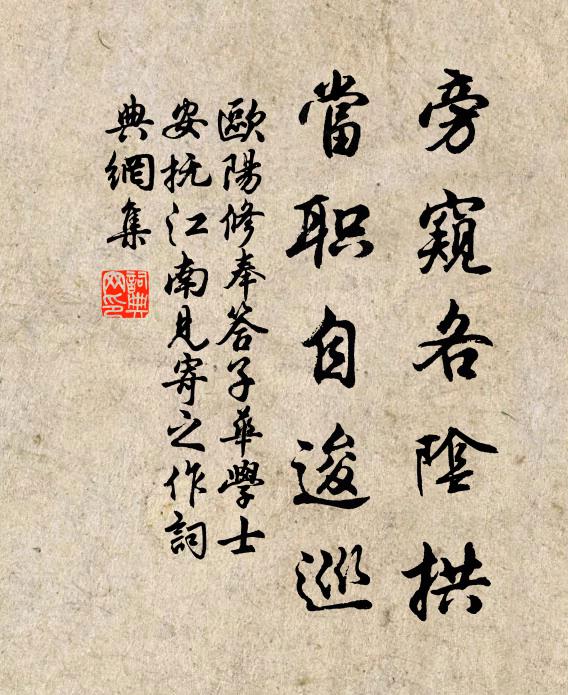 旁窺各陰拱
當职自逡巡
歐陽修奉答子華學士
安抚江南見寄之作詞
典網集
詞典網印